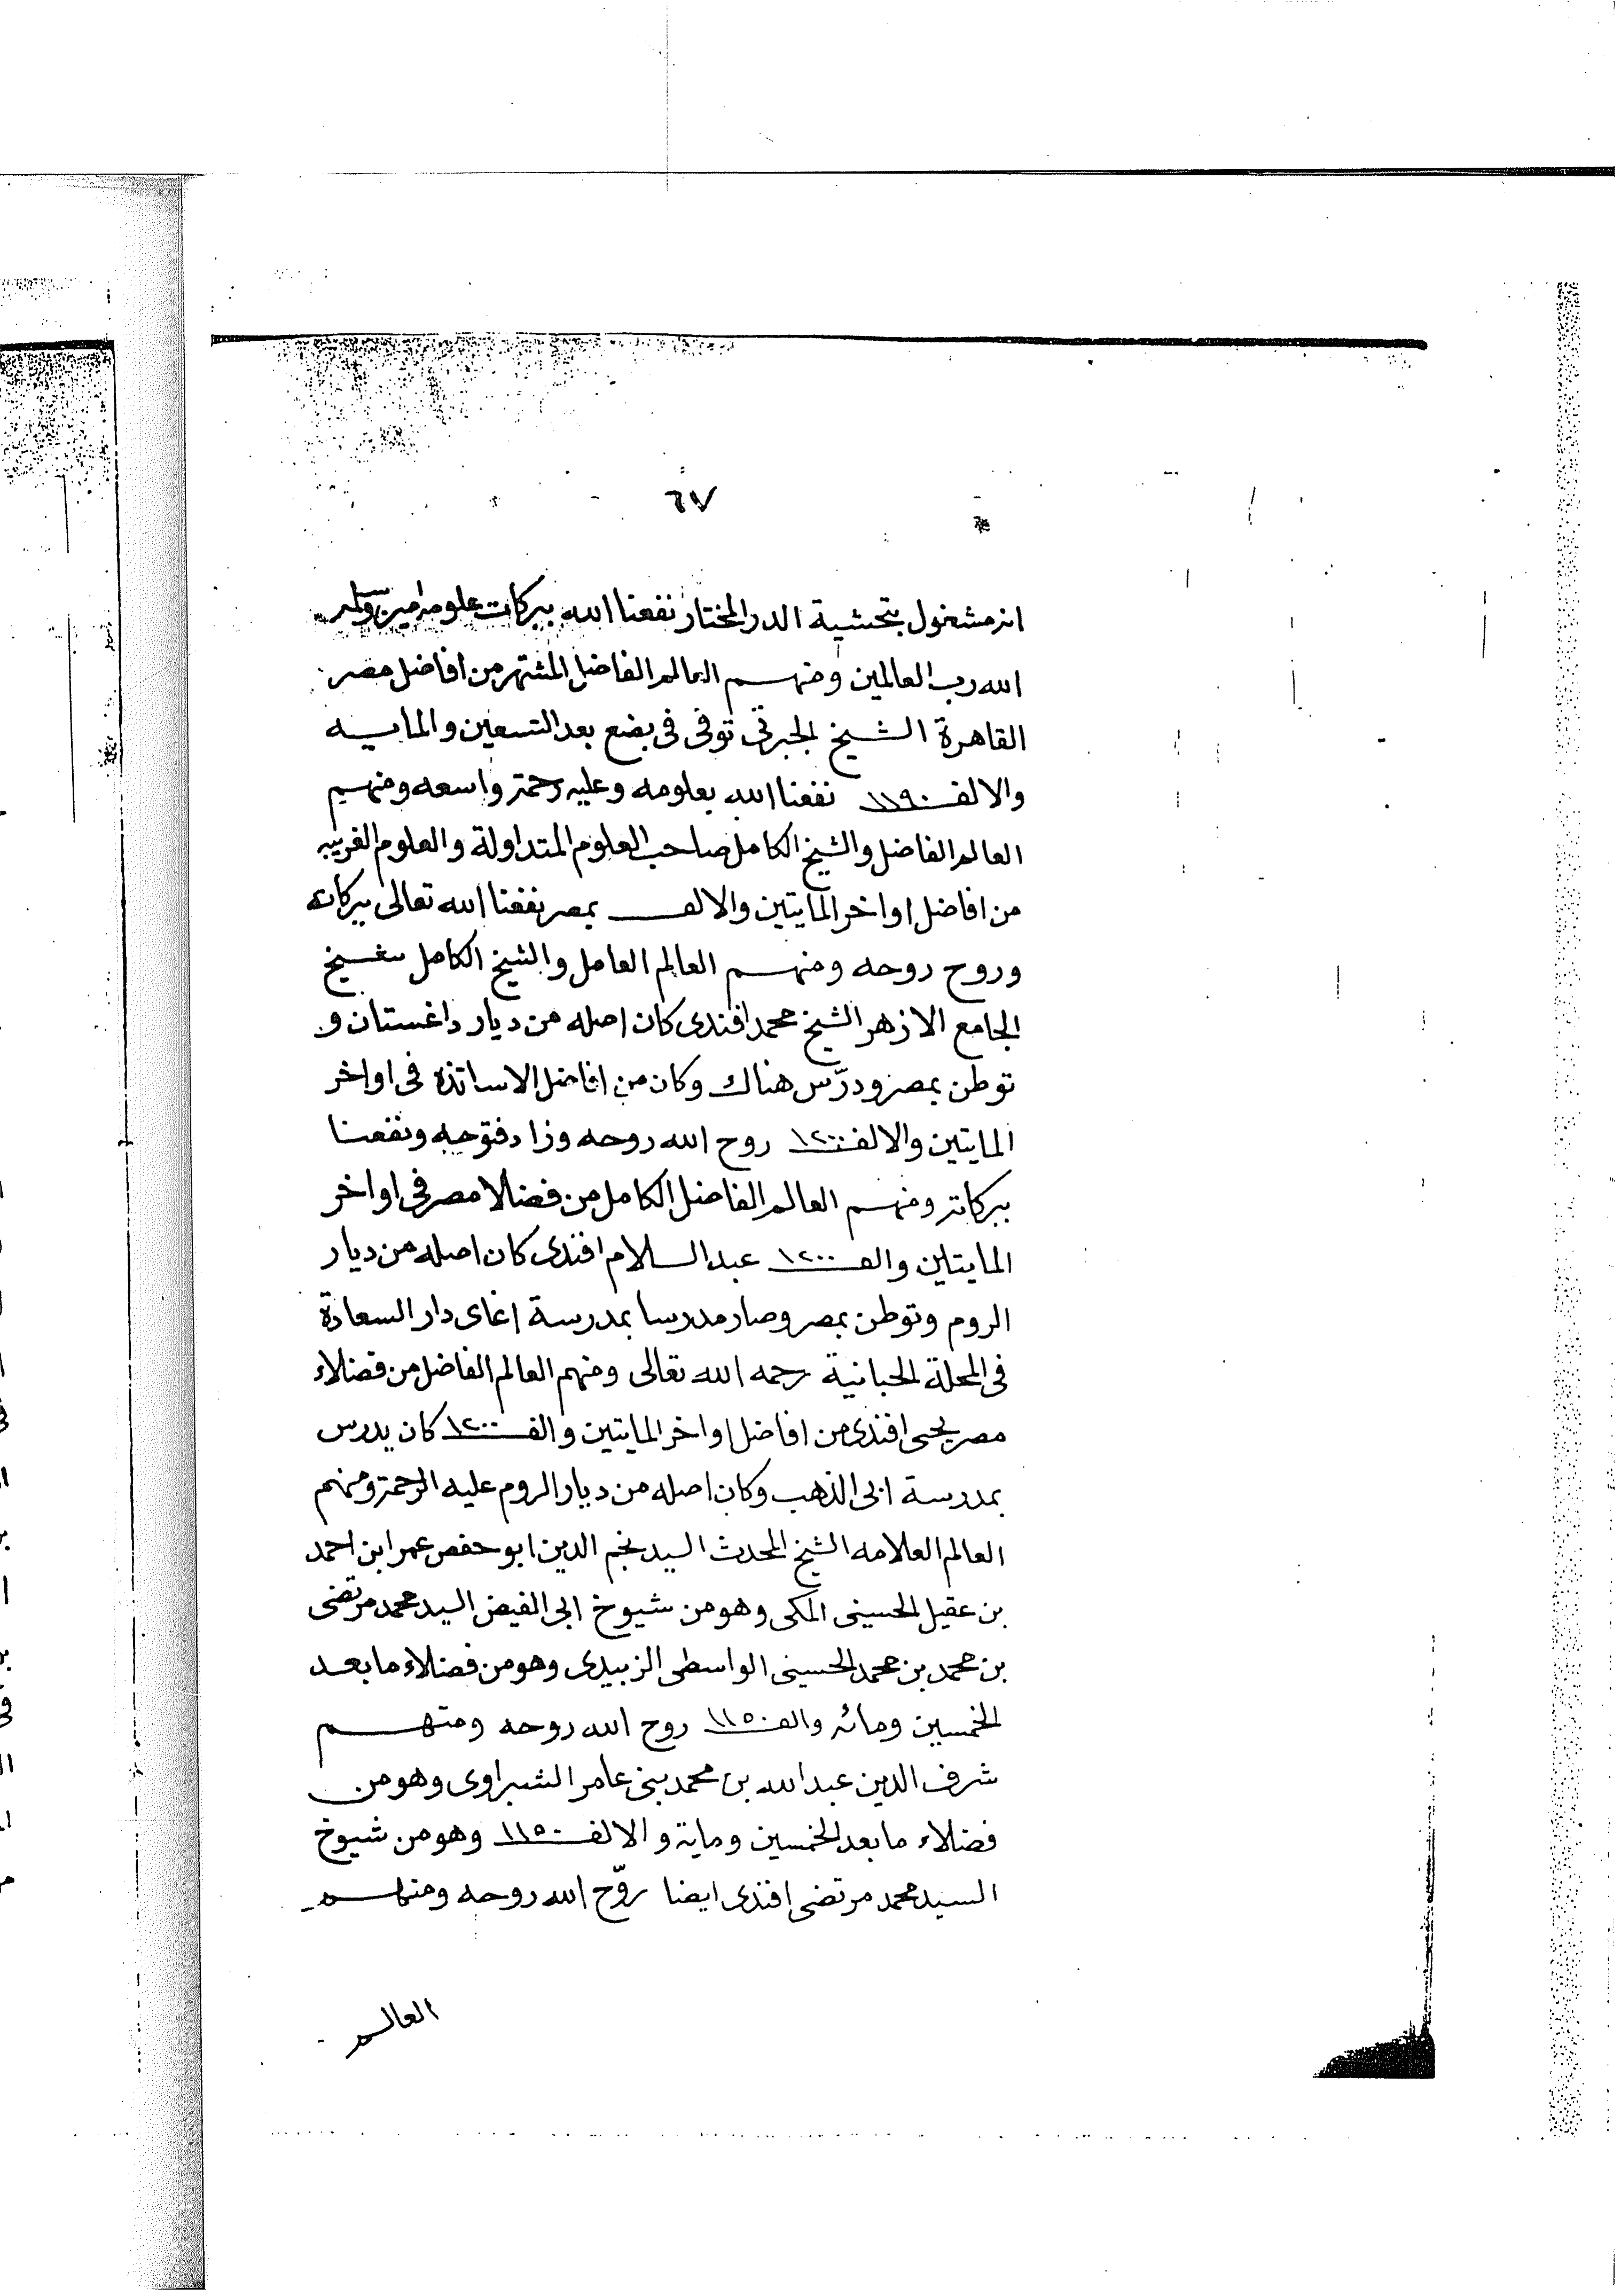 ٦٧
انه مشغول بتحشية الدر المختار نفعنا الله ببركات علومه امين
الله رب العالمين ومنهم العالم الفاضل المشتهر من افاضل مصر
القاهرة الشيخ الجبرتي توفى فى بضع بعد التسعين والمايه
والالف ١١٩٠ نفعنا الله بعلومه وعليه رحمة واسعه ومنهم
العالم الفاضل والشيخ الكامل صاحب العلوم المتداولة والعلوم الغريبه
من افاضل اواخر المايتين والالف بمصر نفعنا الله تعالى ببركاته
وروح روحه ومنهم العالم العامل والشيخ الكامل شيخ
الجامع الازهر الشيخ محمد افندى كان اصله من ديار داغستان و
توطن بمصر ودرّس هناك وكان من افاضل الاساتذه فى اواخر
المايتين والالف ١٢٠٠ روح الله روحه وزاد فتوحه ونفعنا
ببركاته ومنهم العالم الفاضل الكامل من فضلا مصر فى اواخر
المايتين والف ١٢٠٠ عبد السلام افندى كان اصله من ديار
الروم وتوطن بمصر وصار مدرسا بمدرسة اغاى دار السعادة
فى المحلة الحبانية رحمه الله تعالى ومنهم العالم الفاضل من فضلاء
مصر يحيى افندى من افاضل اواخر المايتين والف ١٢٠٠ كان يدرس
بمدرسة ابى الذهب وكان اصله من ديار الروم عليه الرحمة ومنهم
العالم العلامه الشيخ المحدث السيد نجم الدين ابو حفص عمر ابن احمد
بن عقيل الحسينى المكى وهو من شيوخ ابى الفيض السيد محمد مرتضى
بن محمد بن محمد الحسينى الواسطى الزبيدى وهو من فضلاء ما بعد
الخمسين ومائه والف ١١٥٠ روح الله روحه ومنهم
شرف الدين عبد الله بن محمد بنى عامر الشبراوى وهو من
فضلاء ما بعد الخمسين وماية والالف ١١٥٠ وهو من شيوخ
السيد محمد مرتضى افندى ايضا روّح الله روحه ومنهم
العالم